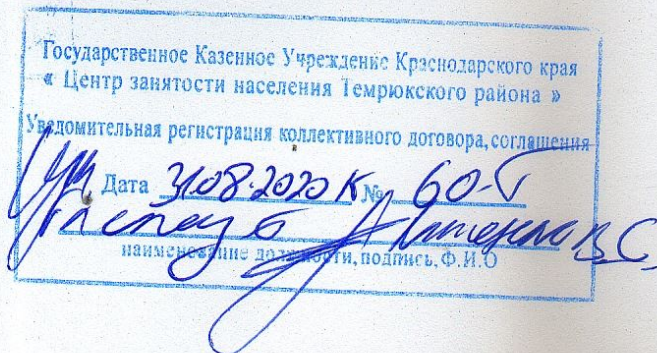 Государственное Казенное Учреждение Краснодарского края
« Центр занятости населения Темрюкского района »
Уведомительная регистрация коллективного договора, соглашения
Дата 31.08.2020 № 60-
В.С.
наименование должности, подпись, Ф.И.О